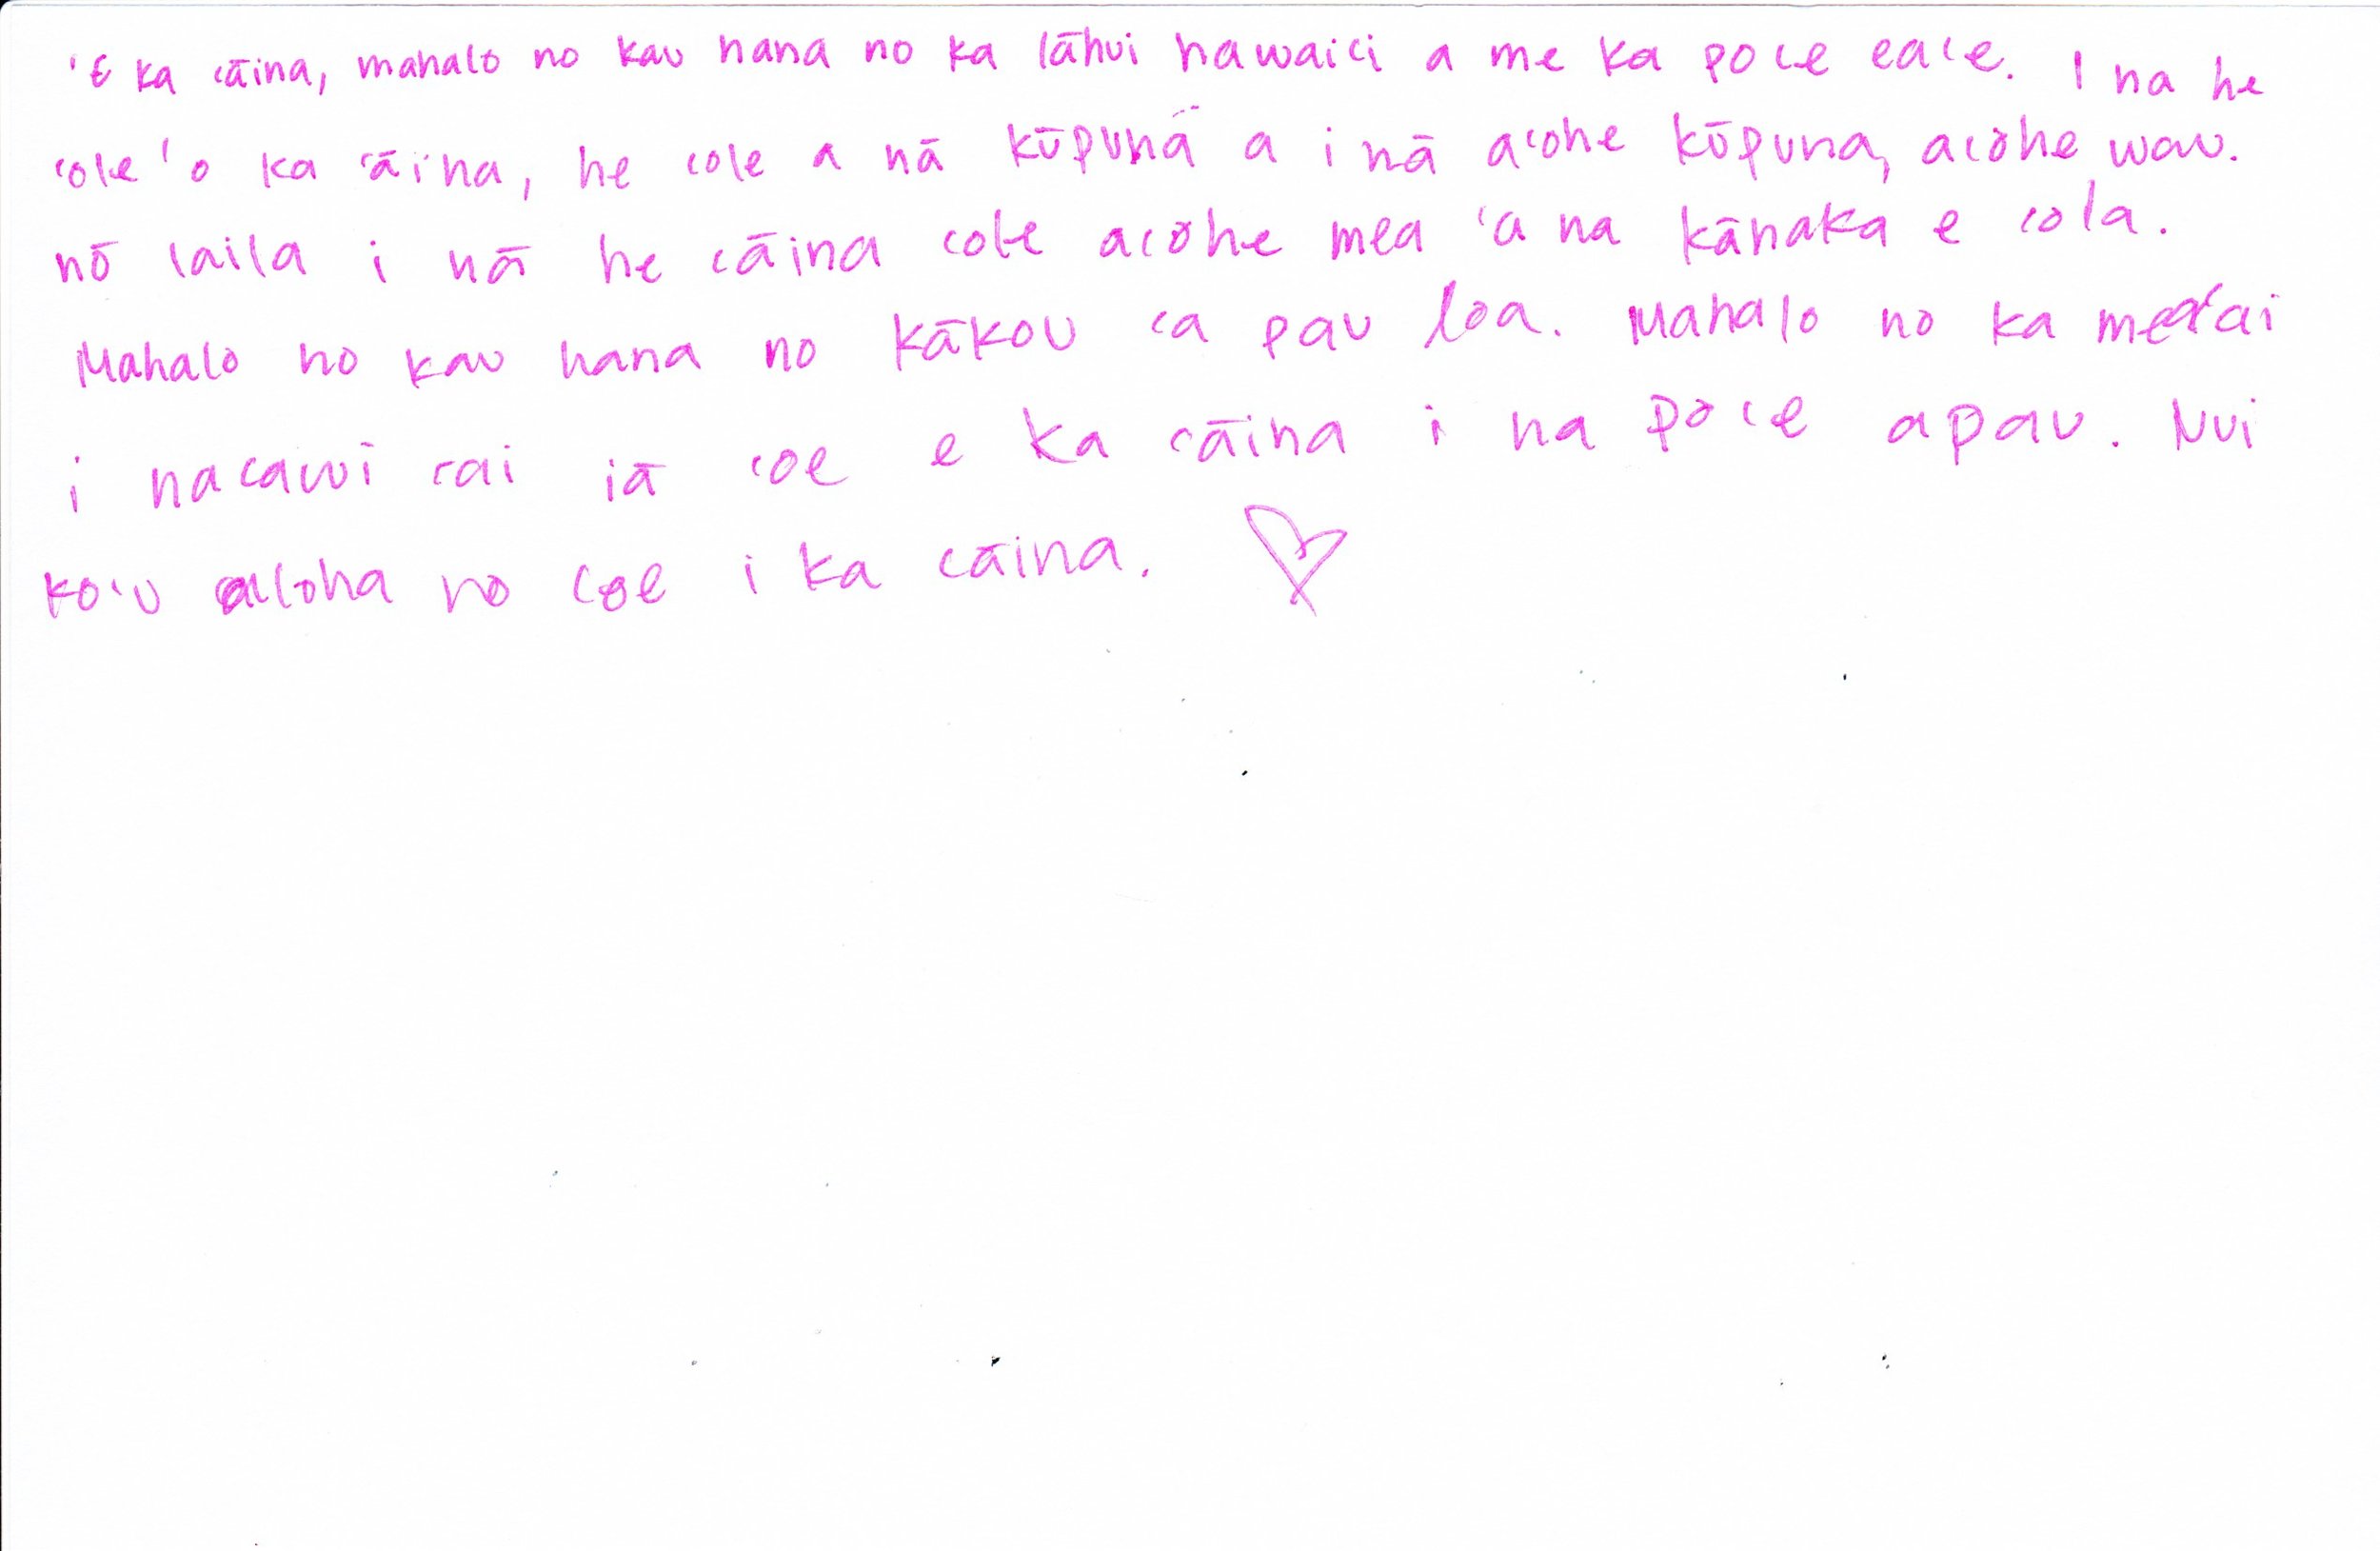 ʻE ka ʻāina, mahalo no kau hana no ka lāhui hawaiʻi a me ka poʻe eaʻe. I na he
ʻole ʻo ka ʻāina, he ʻole a nā kūpuna a i nā aʻohe kūpuna, aʻohe wau.
nō laila i nā he ʻāina ʻole aʻohe mea ʻa na kānaka e ʻola.
Mahalo no kau hana no kākou ʻa pau loa. Mahalo no ka meaʻai
i haʻawi ʻai iā ʻoe e ka ʻāina i na poʻe apau. Nui
koʻu aloha no ʻoe i ka ʻāina.